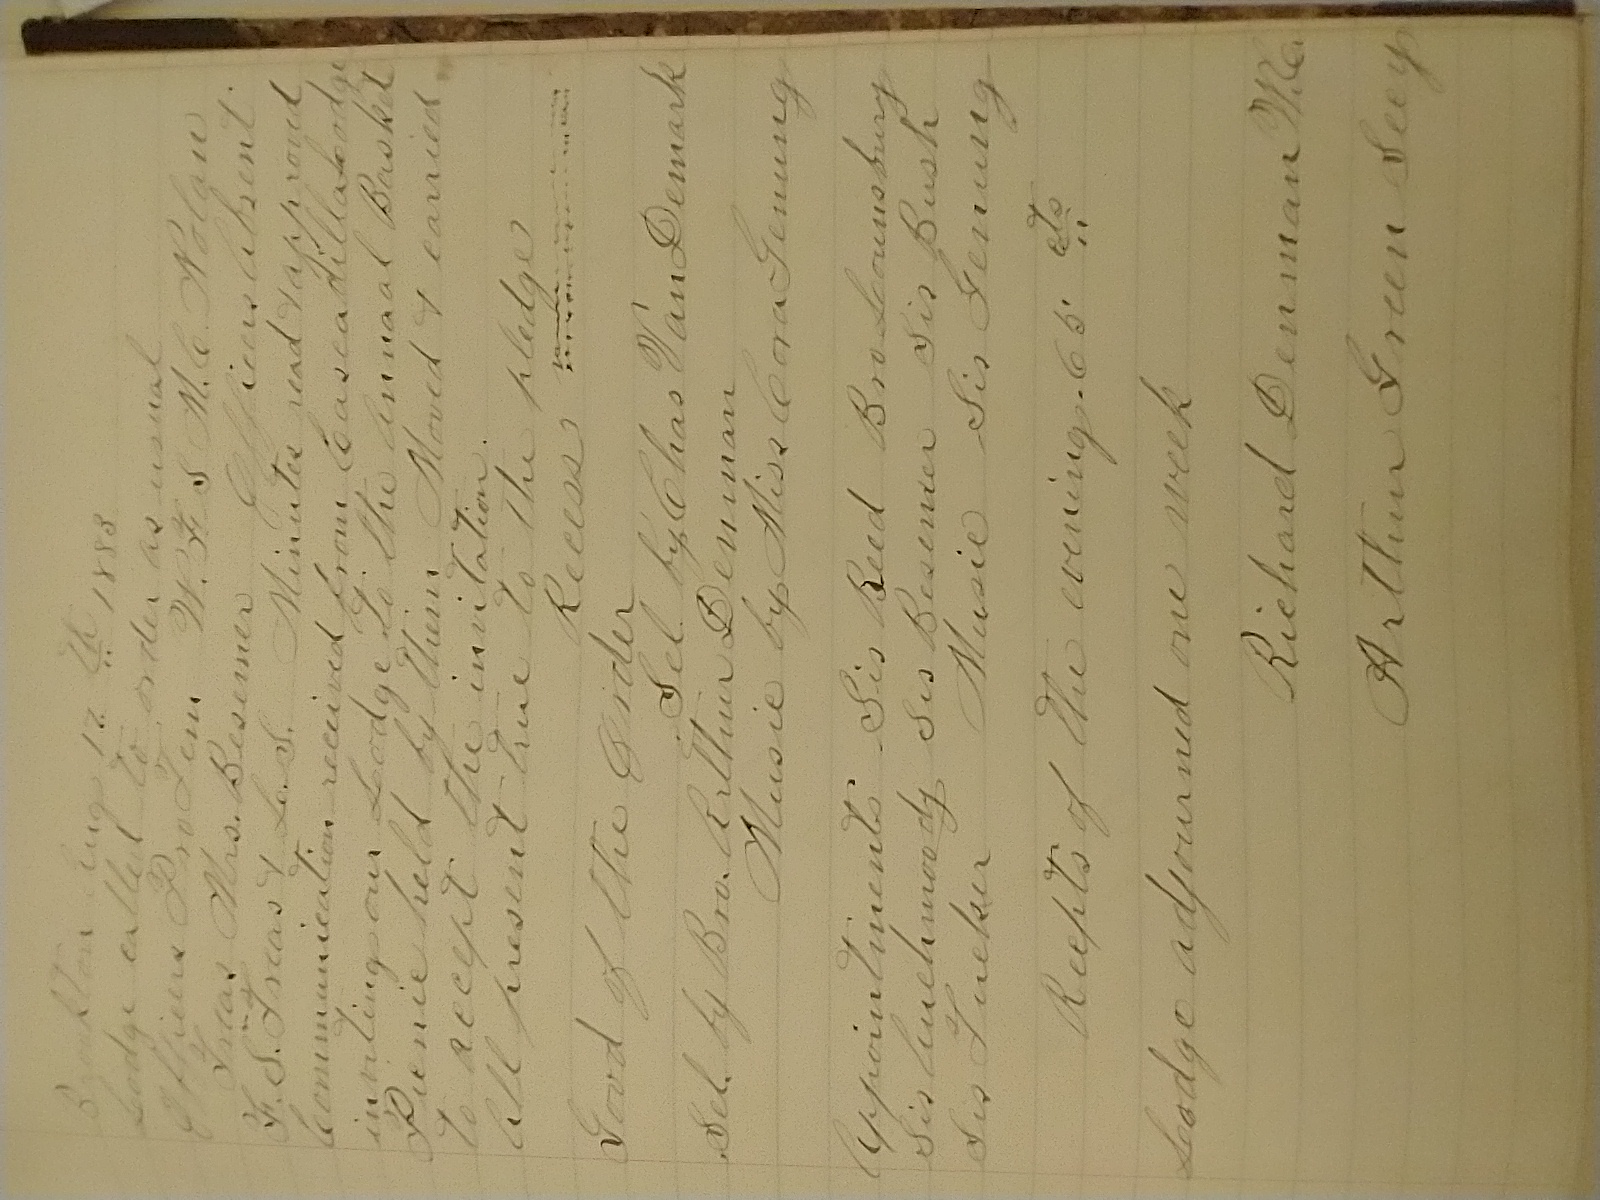 Brookton Aug 17th 1883
Lodge called to order as usual
Officers Pro Tem W. F. S M. C. Nolan
Treas Mrs. Besemer Officers Absent
F. S. Treas & L. S. Minutes read & approved
Communication received from Cascadilla Lodge
inviting our Lodge to the Annual Basket
Picnic held by them Moved & carried
to accept the invitation.
All present true to the pledge
Recess
Good of the Order
Sel. by Chas Van Demark
Sel. by Bro. Arthur Denman
Music by Miss Cora Genung
Appointments Sis Reed Bro Lounsbury
Sis Auchmoody Sis Besemer Sis Bush
Sis Tucker Music Sis Genung
Recpts of the evening .65 cts
Lodge adjourned one week
Richard Denman W.C.
Arthur Green Secy